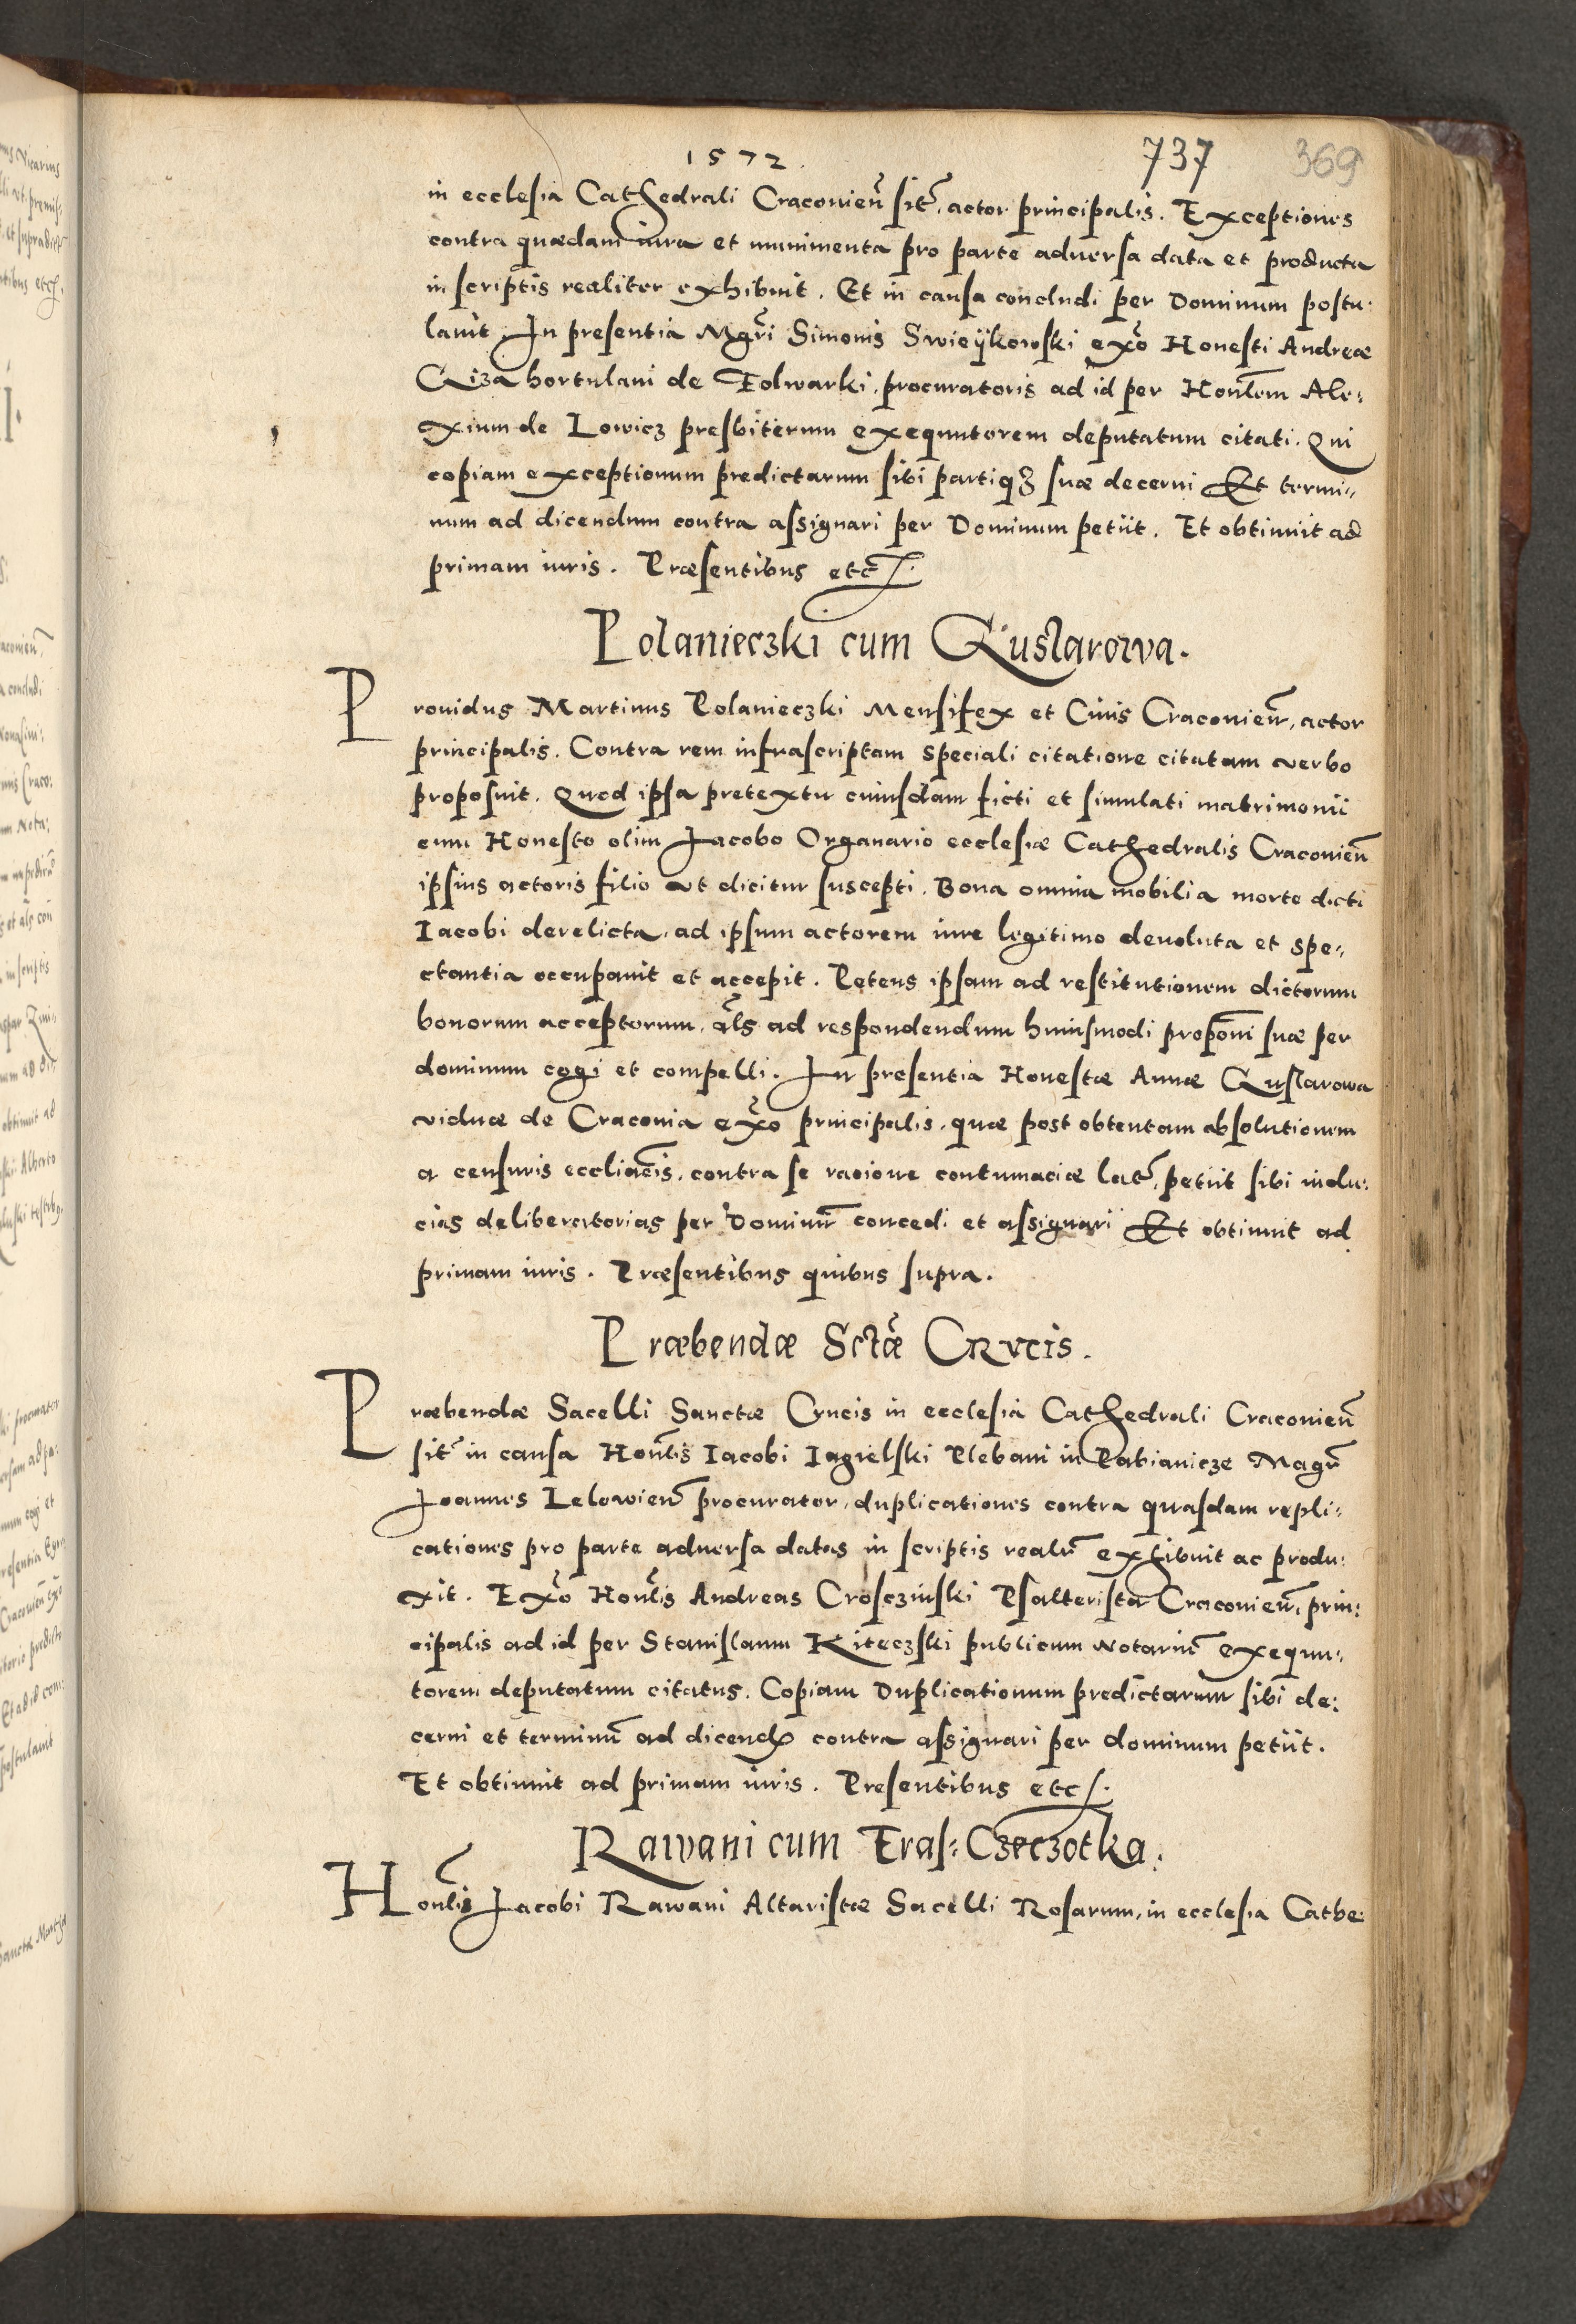 1572. 737 369
in ecclesia Cathedrali Craconien̄ sit̄, actor principalis. Exceptiones
contra quædam iura et munimenta pro parte aduersa data et producta
in scriptis realiter exhibuit. Et in causa concludi per Dominum postu:
lauit In presentia Mgr̄i Simonis Swieijkowski ex̄o Honesti Andreæ
Kiza hortulani de Folwarki, procuratoris ad id per Hon̄lem Ale:
xium de Lowicz presbiterum exequutorem deputatum citati. Qui
copiam exceptionum predictarum sibi partiq₃ suæ decerni Et termi:
num ad dicendum contra assignari per Dominum petiit. Et obtinuit ad
primam iuris. Præsentibus etc̄.
Polanieczki cum Gustarowa.
Prouidus Martinus Polanieczki Mensifex et Ciuis Craconien̄, actor
principalis. Contra rem infrascriptam speciali citatione citatam verbo
proposuit. Quod ipsa pretextu cuiusdam ficti et simulati matrimonii
cum Honesto olim Jacobo Organario ecclesiæ Cathedralis Craconien̄
ipsius actoris filio ut dicitur suscepti. Bona omnia mobilia morte dicti
Iacobi derelicta, ad ipsum actorem iure legitimo deuoluta et spe:
ctantia occupauit et accepit. Petens ipsam ad restitutionem dictorum
bonorum acceptorum, āls ad respondendum huiusmodi propōni suæ per
dominum cogi et compelli. In presentia Honestæ Annæ Gustarowa
viduæ de Craconia ex̄o principalis, quæ post obtentam absolutionem
a censuris eccliācis, contra se racione contumaciæ lat̄, petiit sibi indu:
cias deliberatorias per Dominū concedi et assignari Et obtinuit ad
primam iuris. Præsentibus quibus supra.
Præbendæ Sctǣ Crvcis.
Præbendæ Sacelli Sanctæ Crucis in ecclesia Cathedrali Craconien̄
sit̄ in causa Hon̄lis Iacobi Iagielski Plebani in Pabianicze Magr̄
Joannes Lelowien̄ procurator, duplicationes contra quasdam repli:
cationes pro parte aduersa datas in scriptis realr̄ exhibuit ac produ:
xit. Ex̄o Hon̄lis Andreas Crosczinski Psalterista Craconien̄, prin:
cipalis ad id per Stanislaum Kiteczski publicum Notariū exequu:
torem deputatum citatus. Copiam Duplicationum predictarum sibi de:
cerni et terminū ad dicend̄ contra assignari per dominum petiit.
Et obtinuit ad primam iuris. Presentibus etc.
Rawani cum Eras: Czeczotka.
Hon̄lis Jacobi Rawani Altaristæ Sacelli Rosarum, in ecclesia Cathe: